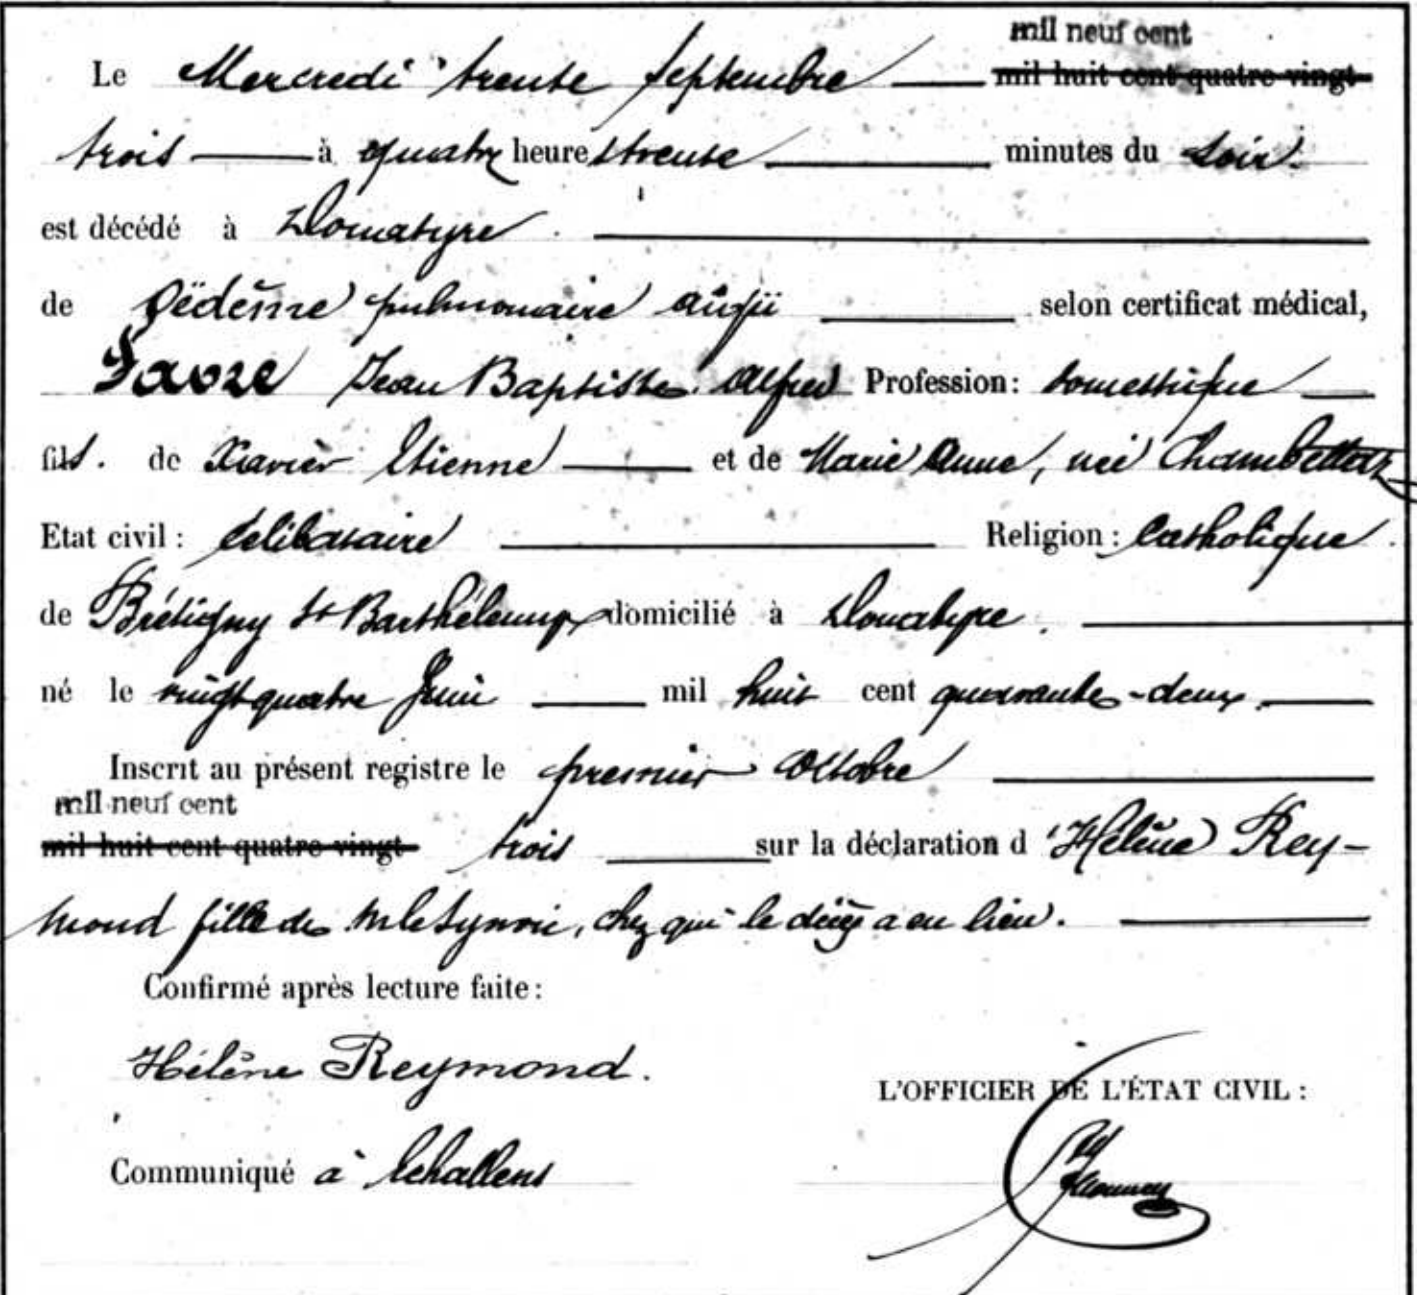 mil neuf cent
Le Mercredi trente Septembre mil huit cent quatre vingt
trois à quatre heures trente minutes du soir.
est décédé à Donatyre.
de Oedème pulmonaire aigü selon certificat médical,
Favre Jean Baptiste Alfred Profession: domestique
fils. de Xavier Etienne et de Marie Anne, née Chambettaz
Etat civil: célibataire Religion: Catholique.
de Brétigny St Barthélemy domicilié à Donatyre.
né le vingt quatre Juin mil huit cent quarante-deux.
Inscrit au présent registre le premier Octobre
mil neuf cent
mil huit cent quatre vingt trois sur la déclaration d'Hélène Rey-
mond fille de Mr le Syndic, chez qui le décès a eu lieu.
Confirmé après lecture faite:
Hélène Reymond.
L'OFFICIER DE L'ÉTAT CIVIL:
Communiqué à Echallens